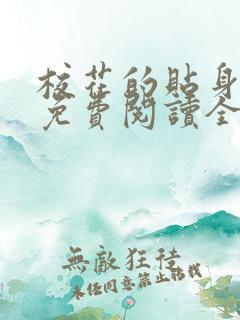 校花的貼身
免費閱讀全
無敵狂徒
未经同意禁止转载